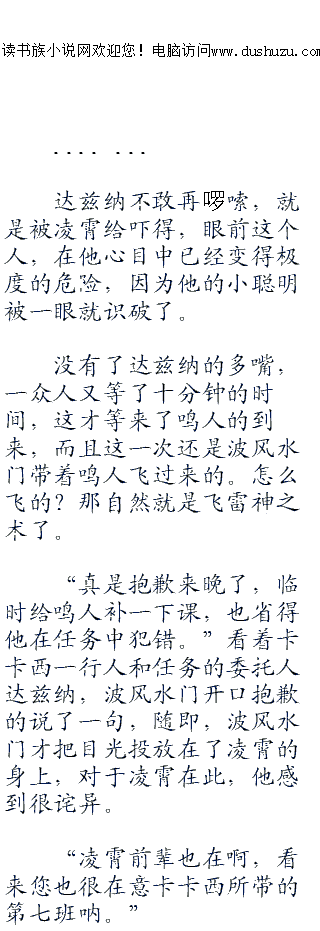 读书族小说网欢迎您！电脑访问www.dushuzu.com
.... ...
达兹纳不敢再啰嗦，就
是被凌霄给吓得，眼前这个
人，在他心目中已经变得极
度的危险，因为他的小聪明
被一眼就识破了。
没有了达兹纳的多嘴，
一众人又等了十分钟的时
间，这才等来了鸣人的到
来，而且这一次还是波风水
门带着鸣人飞过来的。怎么
飞的？那自然就是飞雷神之
术了。
“真是抱歉来晚了，临
时给鸣人补一下课，也省得
他在任务中犯错。”看着卡
卡西一行人和任务的委托人
达兹纳，波风水门开口抱歉
的说了一句，随即，波风水
门才把目光投放在了凌霄的
身上，对于凌霄在此，他感
到很诧异。
“凌霄前辈也在啊，看
来您也很在意卡卡西所带的
第七班呐。”